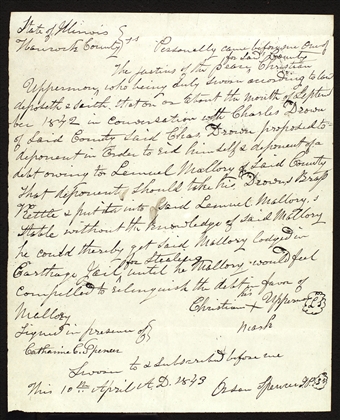 State of Illinois }
Hancock County } ss Personally came before me One of
The Justices of the peace for said County Christian
Uppermon, who being duly sworn according to law
deposeth & saith that on or about the month of Septem
ber 1842 in conversation with Charles Drown
of Said County Said Chas. Drown proposed to
deponent in Order to rid himself & deponent of a
debt owing to Lemuel Mallory of Said County
That deponent should take his, Drowns Brass
Kettle & put it into Said Lemuel Mallory,s
stable without the knowledge of said Mallory
he could thereby get Said Mallory lodged in
Carthage Jail for Stealing until he Mallory would feel
compelled to relinquish the debt in favor of
Mallory
Christian X Uppermon L S
his
mark
Signed in presence of }
Catharine C. Spencer
Sworn to & Subscribed before me
This 10th April A.D. 1843
Orson Spencer J P